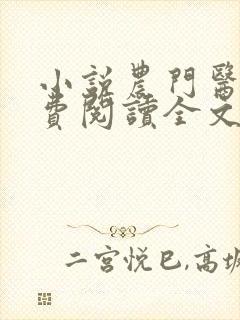 小說農門醫
費閱讀全文
二宮悅巳,高坂